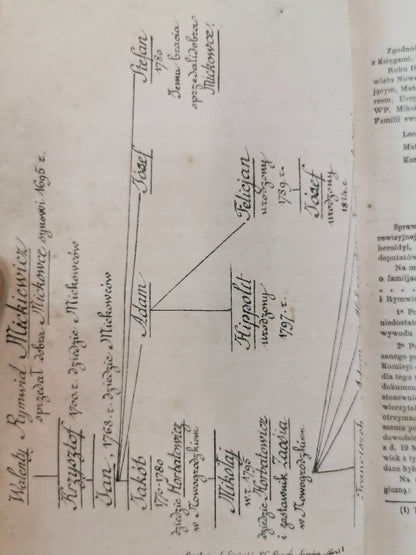 Walenty Rymwid Mickiewicz
sprzedał dobra Mickowce synowi 1695 r.
Krzysztof 1700 r. dziedzic Mickowców
Jan, 1768 r. dziedzic Mickowców
Jakób
1770-1780
dziedzic Horbatowicz
w Nowogródzkiem
Adam
Józef
Stefan
1780
Temu bracia
sprzedali dobra
Mickowce.
Mikołaj
w r. 1795
dziedzic Horbatowicz
i zastawnik Zaosia
w Nowogródzkiem
Hippolit
urodzony
1797. r.
Felicjan
urodzony
1789. r.
Józef
urodzony
1814. r.
Franciszek
Zgodnoś
z Księgami,
Roku 18
wiatu Nowo
jącym, Mate
rzem, Urzę
WP. Mikoł
Familii swo
Leo
Mat
Kaz
Spraw
rewizyjnej
heroldyi,
deputatów
Na mo
o familjac
i Rymwid
1º Po
niedostate
wywodu
2º Po
sanego po
Komisyi
dla tego
dokumen
stosownie
wierzytel
otrzymac
szemu po
dowodzie
z d. 19 X
wiek z ty
dana był
Na
giczną:
(1) T